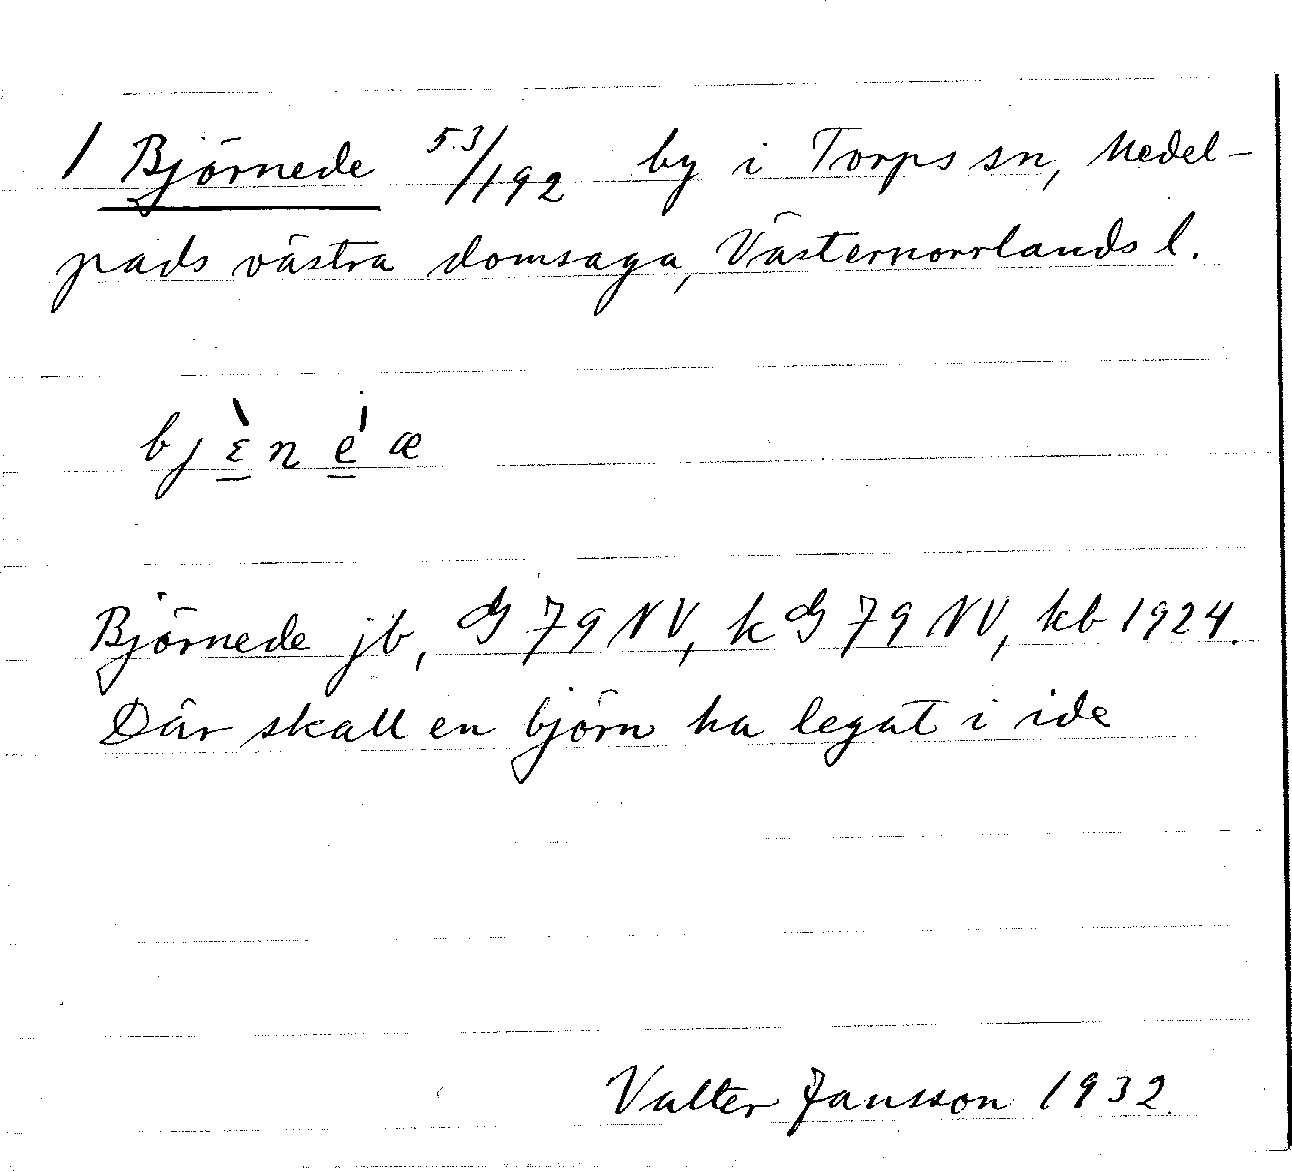 1 Björnede 53/192 by i Torps sn, Medel-
pads västra domsaga, Västernorrlands l.
bjɛ̀néæ
Björnede jb, G 79 NV, k G 79 NV, kb 1924.
Där skall en björn ha legat i ide
Valter Jansson 1932